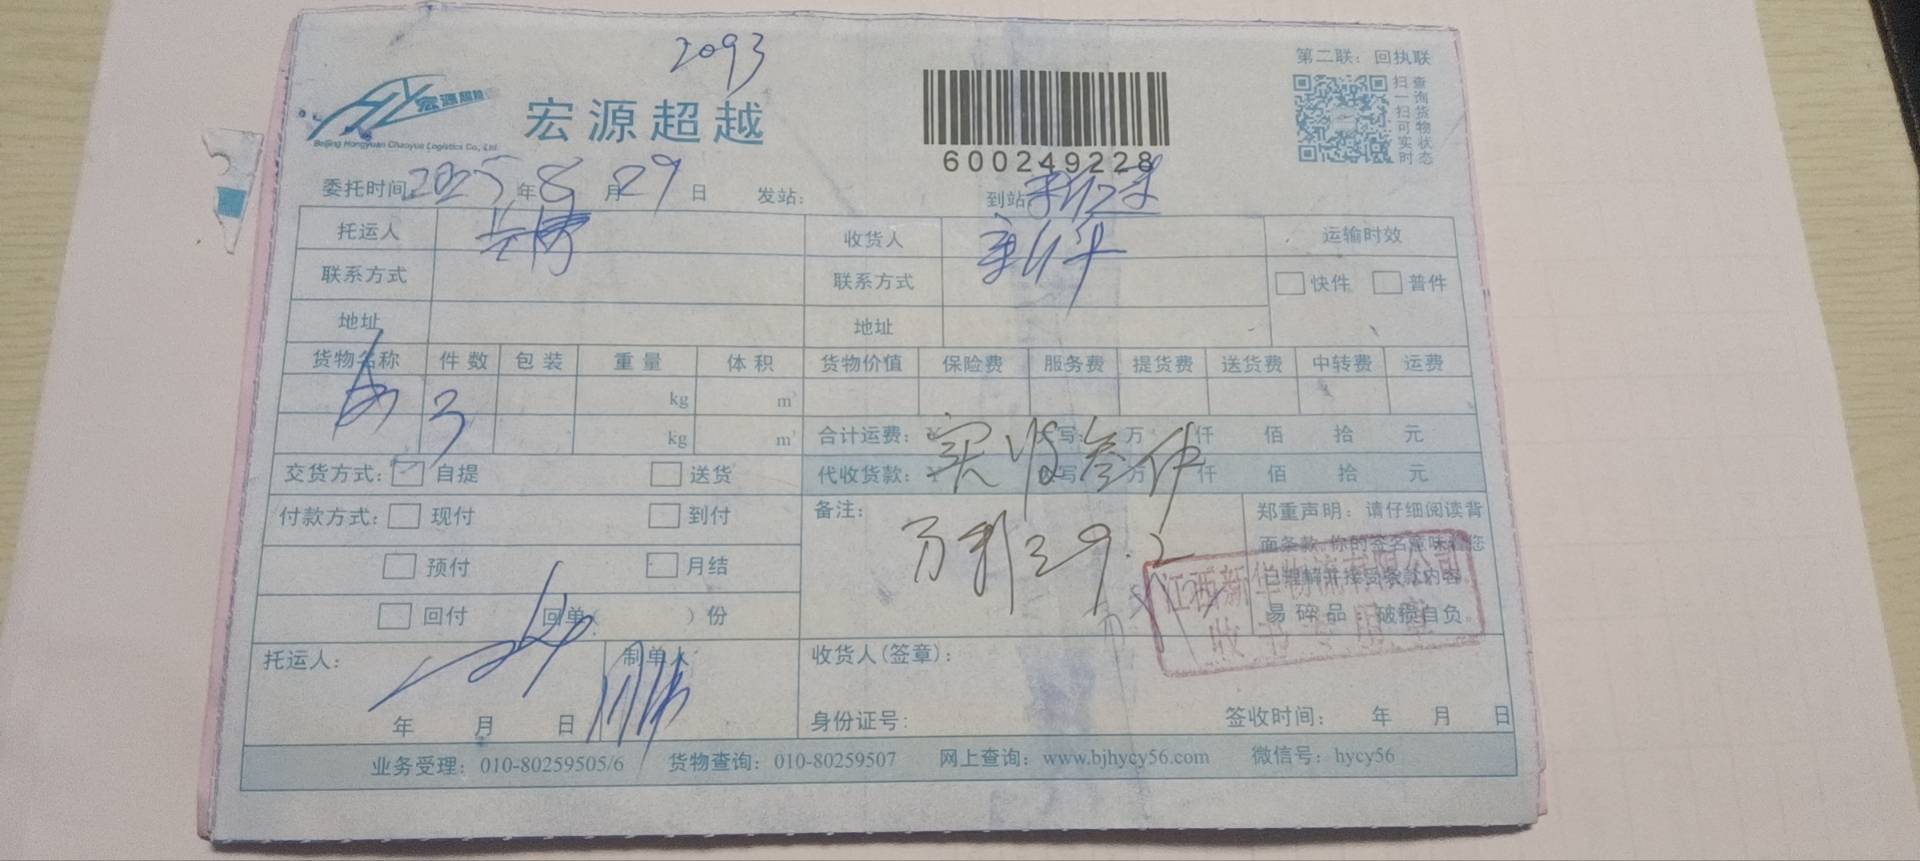 2093
第二联：回执联
宏源超越
宏源超越
Beijing Hongyuan Chaoyue Logistics Co., Ltd.
600249228
扫一扫可实时
查询货物状态
委托时间 2025 年 8 月 29 日 发站： 到站
托运人 收货人 运输时效
联系方式 联系方式 快件 普件
地址 地址
货物名称 件数 包装 重量 体积 货物价值 保险费 服务费 提货费 送货费 中转费 运费
3 kg m³
kg m³ 合计运费：¥ 写： 万 仟 佰 拾 元
交货方式： 自提 送货 代收货款：¥ 写 万 仟 佰 拾 元
实收叁件
付款方式： 现付 到付 备注： 郑重声明：请仔细阅读背
面条款,你的签名意味着您
已理解并接受条款内容。
易碎品，破损自负。
9.2
预付 月结
回付 回单（ ）份
江西新华物流有限公司
收书专用章
托运人： 制单人 收货人(签章)：
年 月 日 身份证号： 签收时间： 年 月 日
业务受理：010-80259505/6 货物查询：010-80259507 网上查询：www.bjhycy56.com 微信号：hycy56